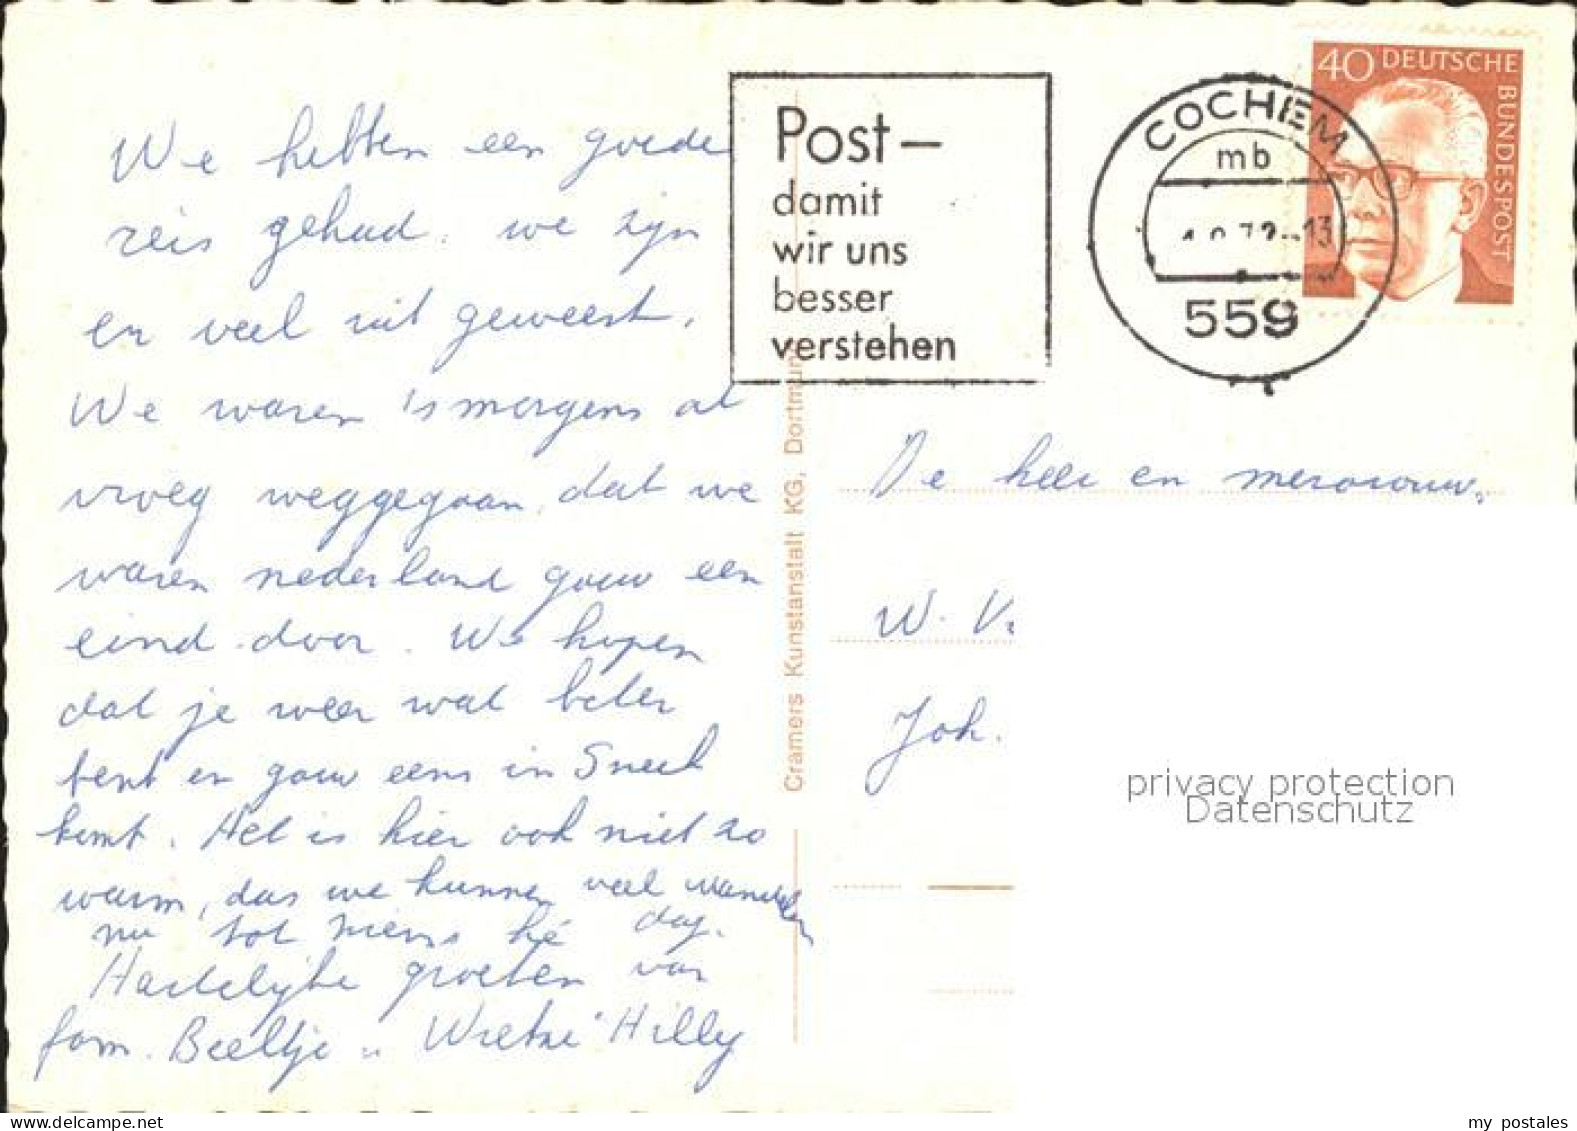 We hebben een goede
reis gehad. we zijn
en veel uit geweest.
We waren 's morgens al
vroeg weggegaan, dat we
waren nederland gauw een
eind door. We hopen
dat je weer wat beter
bent en gauw eens in Sneek
komt. Het is hier ook niet zo
warm, dus we kunnen veel wandelen
nu tot ziens hé dag.
Hartelijke groeten van
fam. Beeltje
Wietze Hilly
Post –
damit
wir uns
besser
verstehen
COCHEM
mb
13
559
40 DEUTSCHE
BUNDESPOST
Cramers Kunstanstalt KG, Dortmund
De heer en mevrouw
W. V
Joh.
privacy protection
Datenschutz
my postales